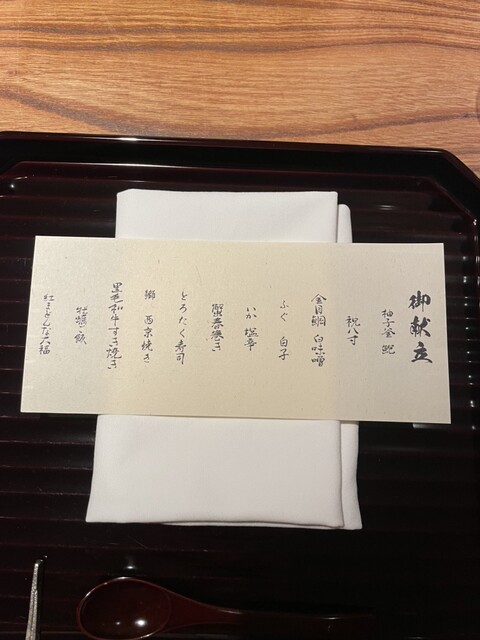 御献立
柚子釜
祝八寸
金目鯛 白味噌
ふぐ 白子
いか 塩辛
蟹春巻き
とろたく寿司
鰤 西京焼き
黒毛和牛すき焼き
牡蠣ご飯
紅まどんな大福